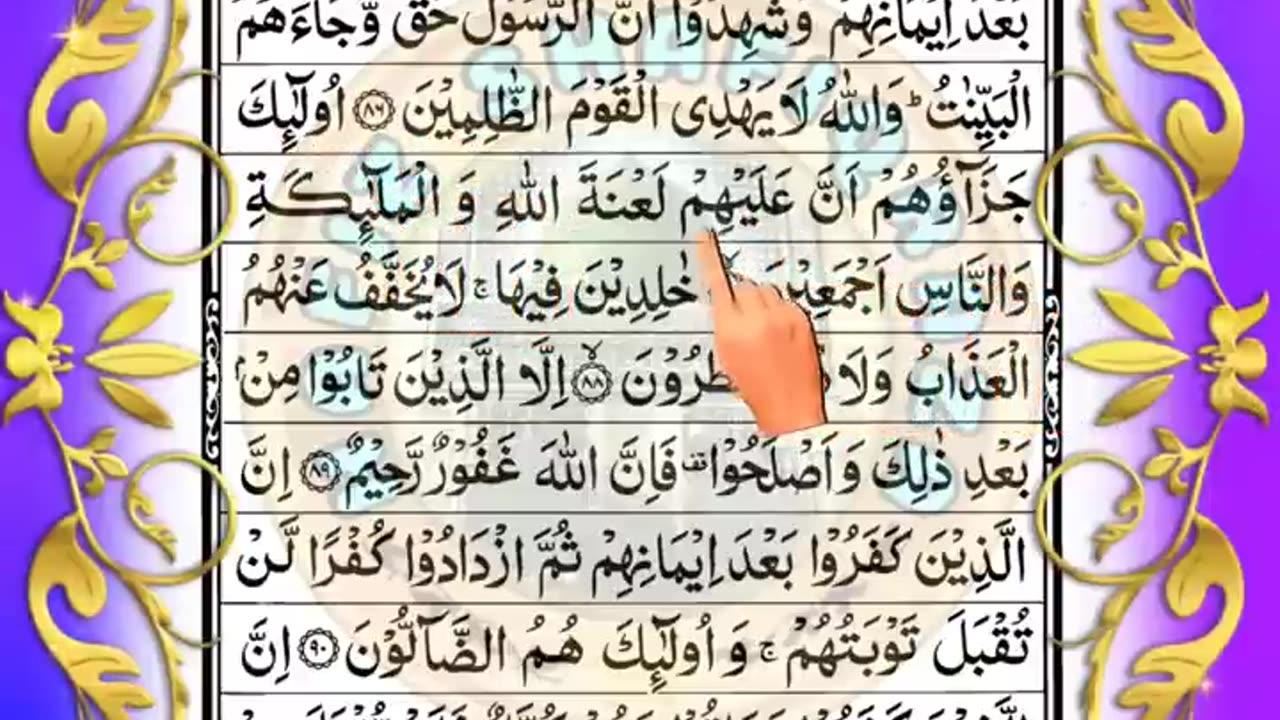 بَعْدَ اِيْمَانِهِمْ وَشَهِدُوْۤا اَنَّ الرَّسُوْلَ حَقٌّ وَّجَآءَهُمُ
الْبَيِّنٰتُ ؕ وَاللّٰهُ لَا يَهْدِى الْقَوْمَ الظّٰلِمِيْنَ ۝۸۶ اُولٰٓئِكَ
جَزَآؤُهُمْ اَنَّ عَلَيْهِمْ لَعْنَةَ اللّٰهِ وَ الْمَلٰٓئِكَةِ
وَالنَّاسِ اَجْمَعِيْنَ خٰلِدِيْنَ فِيْهَا ۚ لَا يُخَفَّفُ عَنْهُمُ
الْعَذَابُ وَلَا ۝۸۸ اِلَّا الَّذِيْنَ تَابُوْا مِنْۢ
بَعْدِ ذٰلِكَ وَ اَصْلَحُوْا فَاِنَّ اللّٰهَ غَفُوْرٌ رَّحِيْمٌ ۝۸۹ اِنَّ
الَّذِيْنَ كَفَرُوْا بَعْدَ اِيْمَانِهِمْ ثُمَّ ازْدَادُوْا كُفْرًا لَّنْ
تُقْبَلَ تَوْبَتُهُمْ ۚ وَ اُولٰٓئِكَ هُمُ الضَّآلُّوْنَ ۝۹۰ اِنَّ